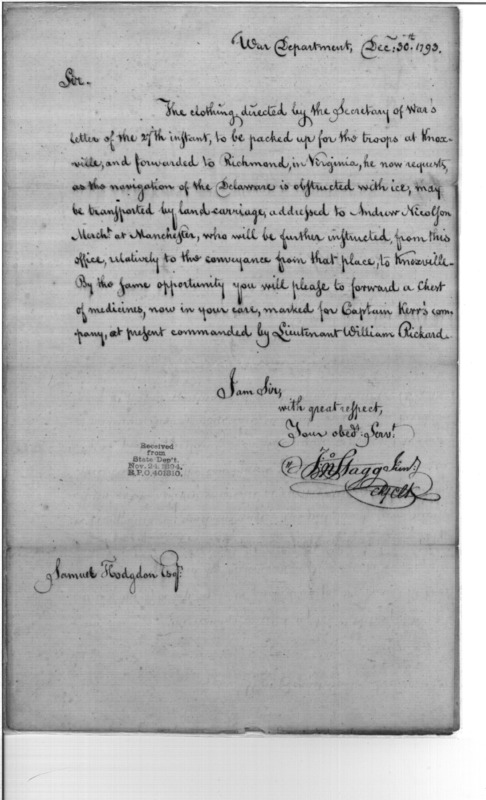 War Department, Decr. 30th. 1793.
Sir.
The clothing directed by the Secretary of War's
letter of the 27th instant, to be packed up for the troops at Knox-
ville, and forwarded to Richmond, in Virginia, he now requests,
as the navigation of the Delaware is obstructed with ice, may
be transported by land carriage, addressed to Andrew Nicolson
Mercht. at Manchester, who will be further instructed, from this
office, relatively to the conveyance from that place, to Knoxville.
By the same opportunity you will please to forward a Chest
of medicines, now in your care, marked for Captain Kerr's com-
pany, at present commanded by Lieutenant William Rickard.
I am Sir,
with great respect,
Your obedt. Servt.
Jno Stagg Junr.
Ch Clk
Received
from
State Dep't.
Nov. 24, 1894.
R.P.O. 401310.
Samuel Hodgdon Esqr.